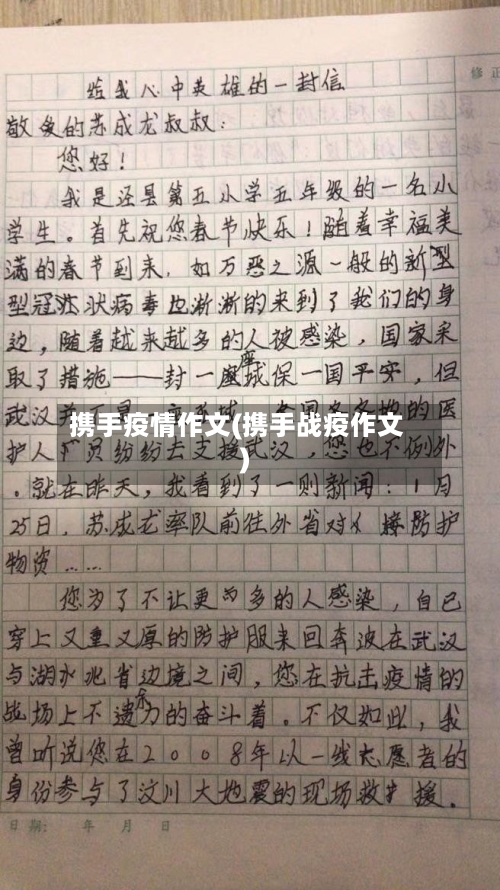 修正
给我心中英雄的一封信
敬爱的苏成龙叔叔：
您好！
我是泾县第五小学五年级的一名小
学生。首先祝您春节快乐！随着幸福美
满的春节到来，如万恶之源一般的新型
型冠状状病毒也渐渐的来到了我们的身
边，随着越来越多的人被感染，国家采
取了措施——封一座城保一国平安，但
武汉
携手疫情作文(携手战疫作文
)
的医
护人 员纷纷去支援武汉，您也不例外
。就在昨天，我看到了一则新闻：1月
25日，苏成龙率队前往外省对 接防护
物资……
您为了不让更 多的人感染，自己
穿上又重又厚的防护服来回奔波在武汉
与湖 北省边境之间，您在抗击疫情的
战场上不遗余力的奋斗着。不仅如此，我
曾听说您在2008年以一线志愿者的
身份参与了汶川大地震的现场救护援。
日期： 年 月 日